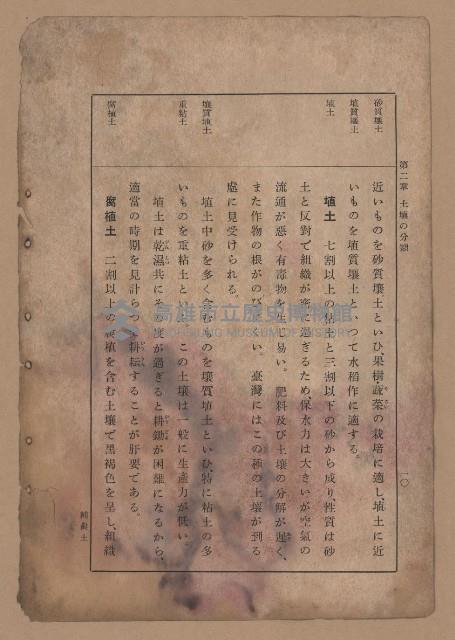 第二章 土壤の分類
一〇
砂質壤土
埴質壤土
埴土
壤質埴土
重粘土
腐植土
近いものを砂質壤土といひ、果樹蔬菜の栽培に適し、埴土に近
いものを埴質壤土といつて水稻作に適する。
埴土 七割以上の粘土と三割以下の砂から成り、性質は砂
土と反對で組織が密過ぎるため、保水力は大きいが空氣の
流通が惡く有毒物を生じ易い。肥料及び土壤の分解が遲く、
また作物の根がのびにくい。臺灣にはこの種の土壤が到る
處に見受けられる。
埴土中砂を多く含むものを壤質埴土といひ、特に粘土の多
いものを重粘土といふ。この土壤は一般に生產力が低い。
埴土は乾濕共にその度が過ぎると耕鋤が困難になるから、
適當の時期を見計らつて耕耘することが肝要である。
腐植土 二割以上の腐植を含む土壤で黑褐色を呈し、組織
高雄市立歷史博物館
KAOHSIUNG MUSEUM OF HISTORY